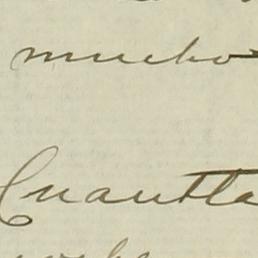 mucho
Cuautla